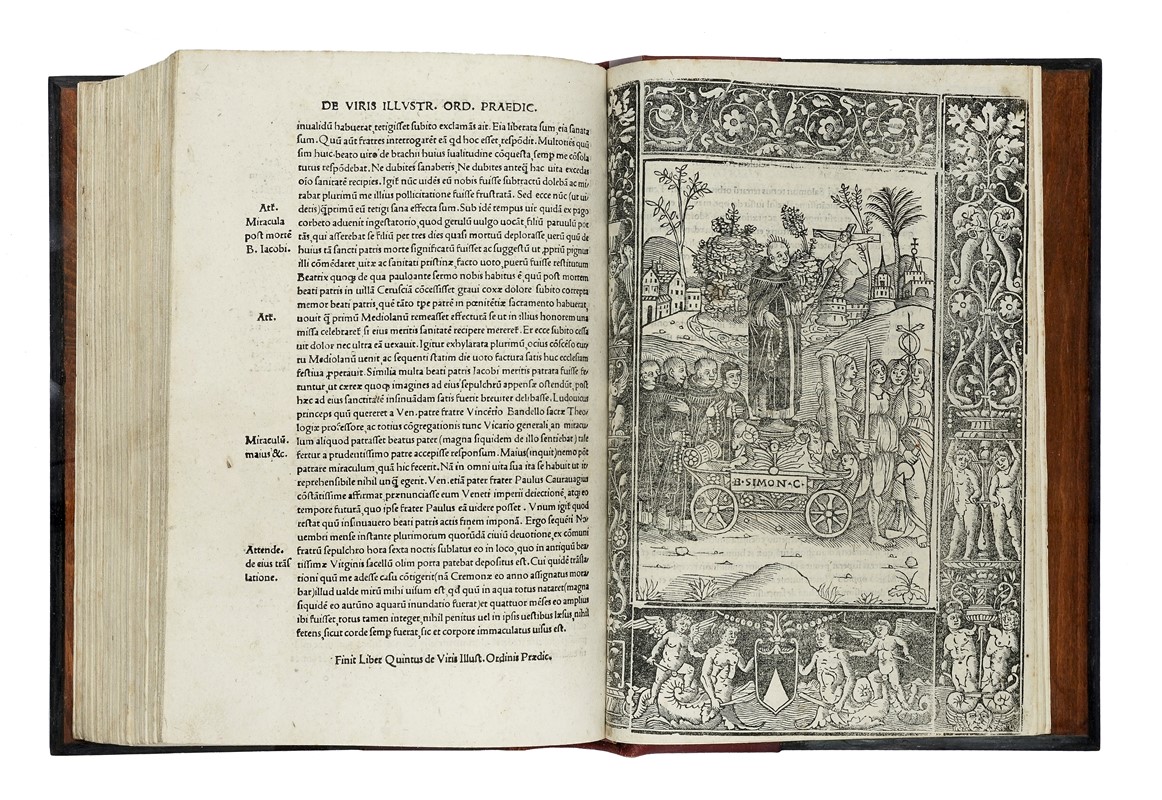 DE VIRIS ILLVSTR. ORD. PRAEDIC.
inualidū habuerat, tetigisset subito exclamās ait. Eia liberata sum, eia sanata
sum. Quū aūt fratres interrogarēt eā qd hoc esset, respōdit. Multoties quū
sim huic beato uiro de brachii huius īualitudine cōquesta, semp me cōsola
turus respōdebat. Ne dubites sanaberis, Ne dubites anteq̄ hac uita excedas
oīo sanitatē recipies. Igit̄ nūc uidēs eū nobis fuisse subtractū dolebā ac mi-
rabar plurimū me illius pollicitatione fuisse frustratā. Sed ecce nūc (ut ui-
Att.
detis) q̄primū eū tetigi sana effecta sum. Sub idē tempus uir quidā ex pago
Miracula
corbeto aduenit ingestatorio, quod gerulū uulgo uocāt, filiū paruulū por
post mortē
tās, qui asserebat se filiū per tres dies quasi mortuū deplorasse, uerū quū de
B. Iacobi.
huius tā sancti patris morte significatū fuisset ac suggestū ut, pptiū pignus
illi cōmēdaret, uitæ ac sanitati pristinæ, facto uoto, puerū fuisse restitutum
Beatrix quoq; de qua pauloante sermo nobis habitus ē, quū post mortem
beati patris in uilla Cerusciā cōcessisset graui coxæ dolore subito correpta
memor beati patris, quē tāto tpe patrē in pœnitētiæ sacramento habuerat,
Att.
uouit q̄ primū Mediolanū remeasset effecturā se ut in illius honorem una
missa celebraret̄ si eius meritis sanitatē recipere mereret̄. Et ecce subito cessa
uit dolor nec ultra eā uexauit. Igitur exhylarata plurimū, ocius cōscēso curr
tu Mediolanū uenit, ac sequenti statim die uoto factura satis huc ecclesiam
festiua, pperauit. Similia multa beati patris Iacobi meritis patrata fuisse fe-
runtur, ut cæreæ quoq; imagines ad eius sepulchrū appensæ ostendūt, post
hæc ad eius sanctitatē insinuādam satis fuerit breuiter delibasse. Ludouicus
princeps quū quereret a Ven. patre fratre Vincētio Bandello sacræ Theo-
logiæ professore, ac totius cōgregationis tunc Vicario generali, an miracu-
Miraculū.
lum aliquod patrasset beatus pater (magna siquidem de illo sentiebat) tale
maius &c.
fertur a prudentissimo patre accepisse responsum. Maius (inquit) nemo pōt
patrare miraculum, quā hic fecerit. Nā in omni uita sua ita se habuit ut ir-
reprehensibile nihil unq̄ egerit. Ven. etiā pater frater Paulus Carauagius
cōstātissime affirmat, prænunciasse eum Veneti imperii deiectionē, atq; eo
tempore futurā, quo ipse frater Paulus eā uidere posset. Vnum igit̄ quod
restat quū insinuauero beati patris actis finem imponā. Ergo sequēti No-
uembri mense instante plurimorum quorūdā ciuiū deuotione, ex cōmuni
Attende.
fratrū sepulchro hora sexta noctis sublatus eo in loco, quo in antiquū bea-
de eius trās
tissimæ Virginis sacellū olim porta patebat depositus est. Cui quidē trāsla-
latione.
tioni quū me adesse casu cōtigerit (nā Cremonæ eo anno assignatus mora-
bar) illud ualde mirū mihi uisum est, qd quū in aqua totus nataret (magna
siquidē eo autūno aquarū inundatio fuerat) et quattuor mēses eo amplius
ibi fuisset, totus tamen integer, nihil penitus uel in ipsis uestibus læsus, nihil
fetens, sicut corde semp fuerat, sic et corpore immaculatus uisus est.
Finit Liber Quintus de Viris Illust. Ordinis Prædic.
B·SIMON·C·